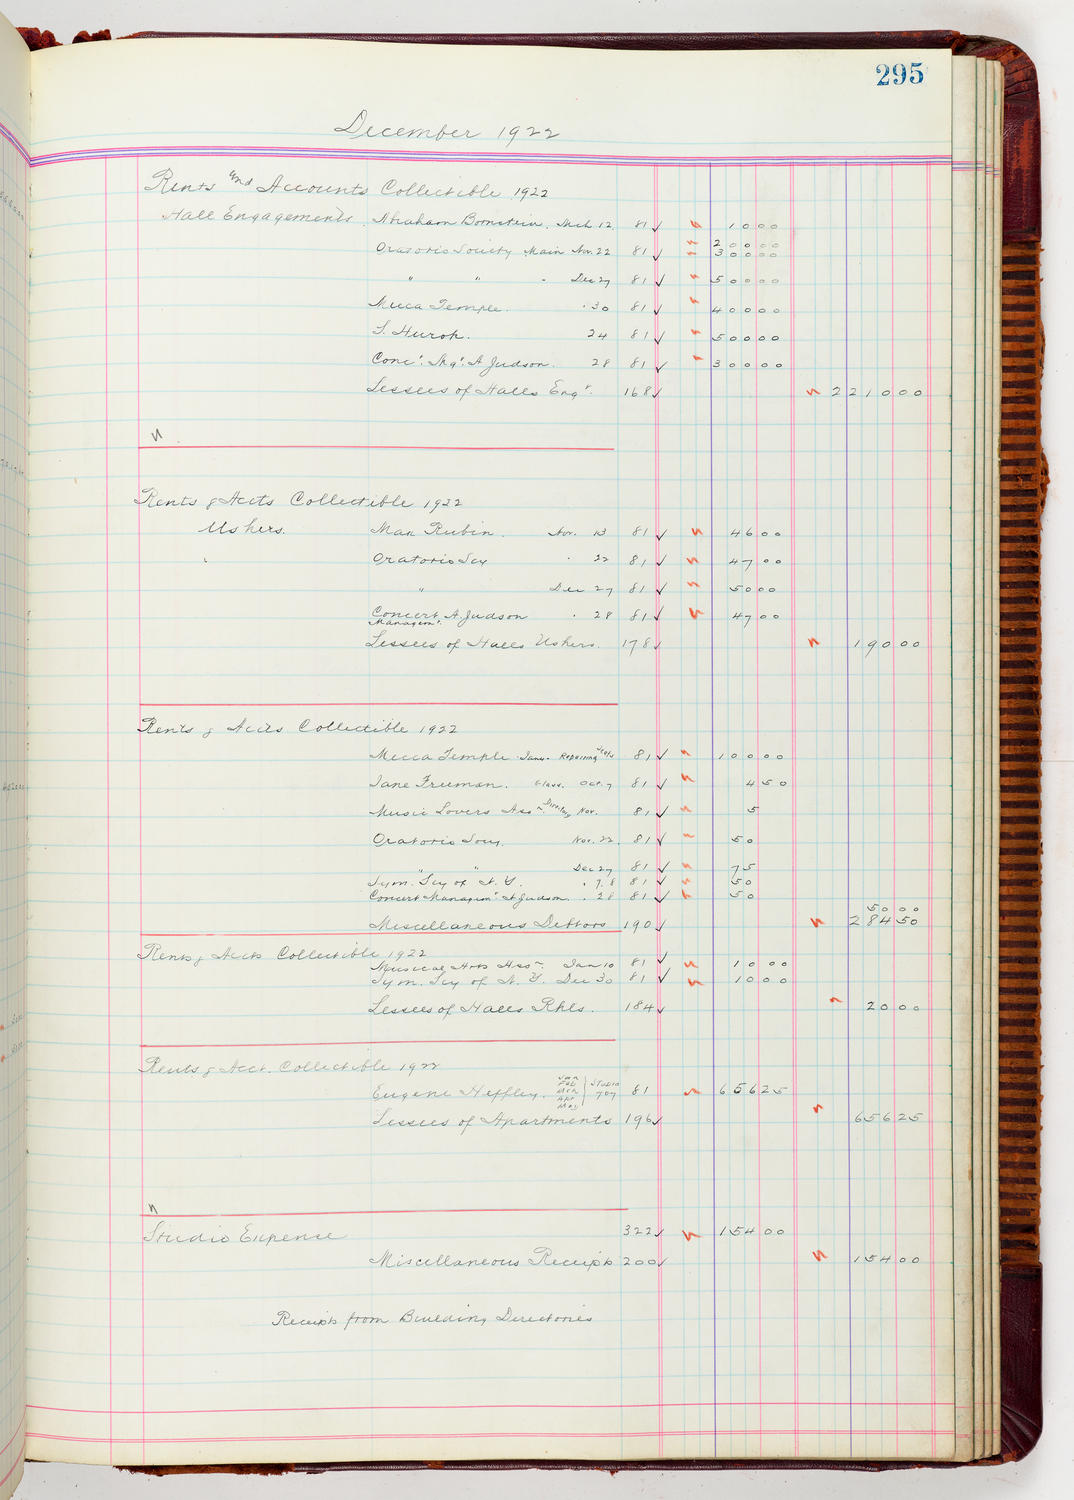 295
December 1922
Rents and Accounts Collectible 1922
Hall Engagements Abraham Bornstein, Mch 12, 81 ✓ 10 00
Oratorio Society Main Nov. 22 81 ✓ 200 00
300 00
" " " Dec 27 81 ✓ 500 00
Mecca Temple. " 30 81 ✓ 400 00
S. Hurok. 24 81 ✓ 500 00
Conc't. Mg't. A Judson. 28 81 ✓ 300 00
Lessees of Halls Eng't. 168 ✓ 2210 00
Rents & Accts Collectible 1922
Ushers. Max Rubin. Nov. 13 81 ✓ 46 00
Oratorio Scy " 22 81 ✓ 47 00
" Dec 27 81 ✓ 50 00
Concert A. Judson " 28 81 ✓ 47 00
Managem't.
Lessees of Halls Ushers. 178 ✓ 190 00
Rents & Accts Collectible 1922
Mecca Temple Jany. Repairing 81 ✓ 100 00
Jane Freeman. Glass. Oct. 7 81 ✓ 4 50
Music Lovers Ass'n. Nov. 81 ✓ 5
Oratorio Socy. Nov. 22. 81 ✓ 50
" Dec 27 81 ✓ 75
Sym. Scy of N. Y. 81 ✓ 50
Concert Managem't A Judson. . 28 81 ✓ 50
50 00
Miscellaneous Debtors 190 ✓ 284 50
Rents & Accts Collectible 1922
Musical Arts Ass'n. Jan 10 81 ✓ 10 00
Sym. Scy of N. Y. Dec 30 81 ✓ 10 00
Lessees of Halls Rhls. 184 ✓ 20 00
Rents & Acct. Collectible 1922
Eugene Heffley. Jan Feb Mch Apr May Studio 707 81 656 25
Lessees of Apartments 196 ✓ 656 25
Studio Expense 322 ✓ 154 00
Miscellaneous Receipts 200 ✓ 154 00
Receipts from Building Directories